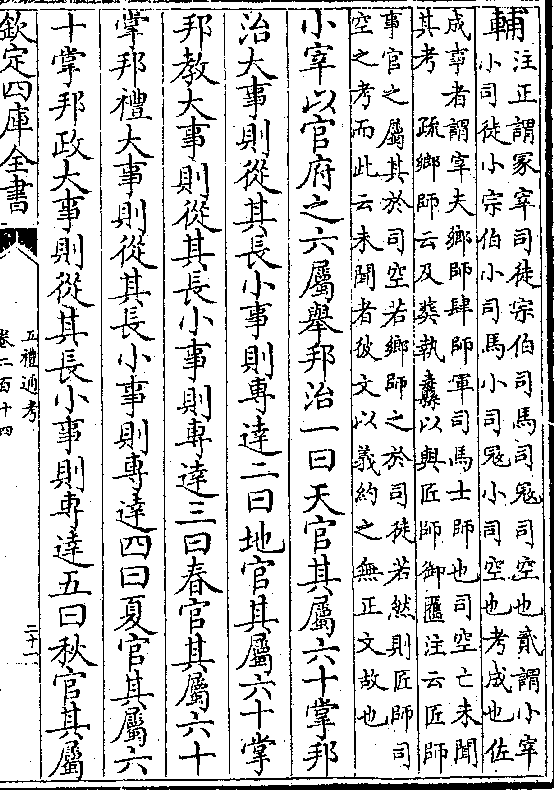 輔
注正謂冢宰司徒宗伯司馬司寇司空也貳謂小宰
小司徒小宗伯小司馬小司寇小司空也考成也佐
成事者謂宰夫鄉師肆師軍司馬士師也司空亡未聞
其考 疏鄉師云及葬執纛以與匠師御匶注云匠師
事官之屬其於司空若鄉師之於司徒若然則匠師司
空之考而此云未聞者彼文以義約之無正文故也
小宰以官府之六屬舉邦治一曰天官其屬六十掌邦
治大事則從其長小事則專達二曰地官其屬六十掌
邦教大事則從其長小事則專達三曰春官其屬六十
掌邦禮大事則從其長小事則專達四曰夏官其屬六
十掌邦政大事則從其長小事則專達五曰秋官其屬
欽定四庫全書
五禮通考
卷二百十四
二十一